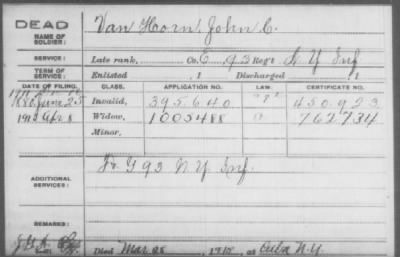 DEAD
NAME OF SOLDIER:
Van Horn, John C.
SERVICE:
Late rank, Co. E, 93 Reg't N Y Inf
TERM OF SERVICE:
Enlisted , 1 Discharged , 1
DATE OF FILING.
CLASS.
APPLICATION NO.
LAW.
CERTIFICATE NO.
1880 June 25
Invalid,
395.640
450.923
Apr 8
Widow,
1005488
762734
Minor,
ADDITIONAL SERVICES:
G 93 N Y Inf.
REMARKS:
Died Mar , 191 , at Cuba N.Y.